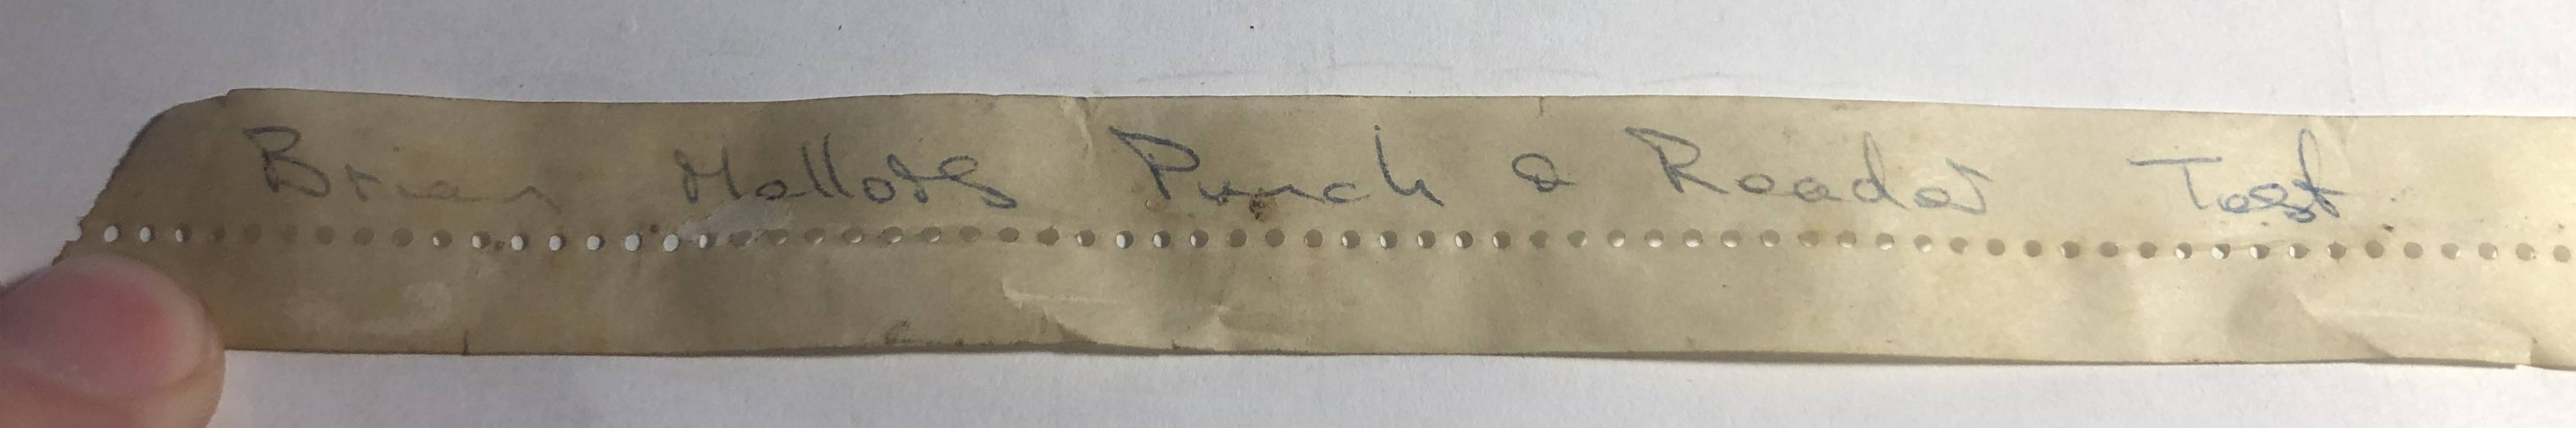 Brian Malloys Punch & Reader Test